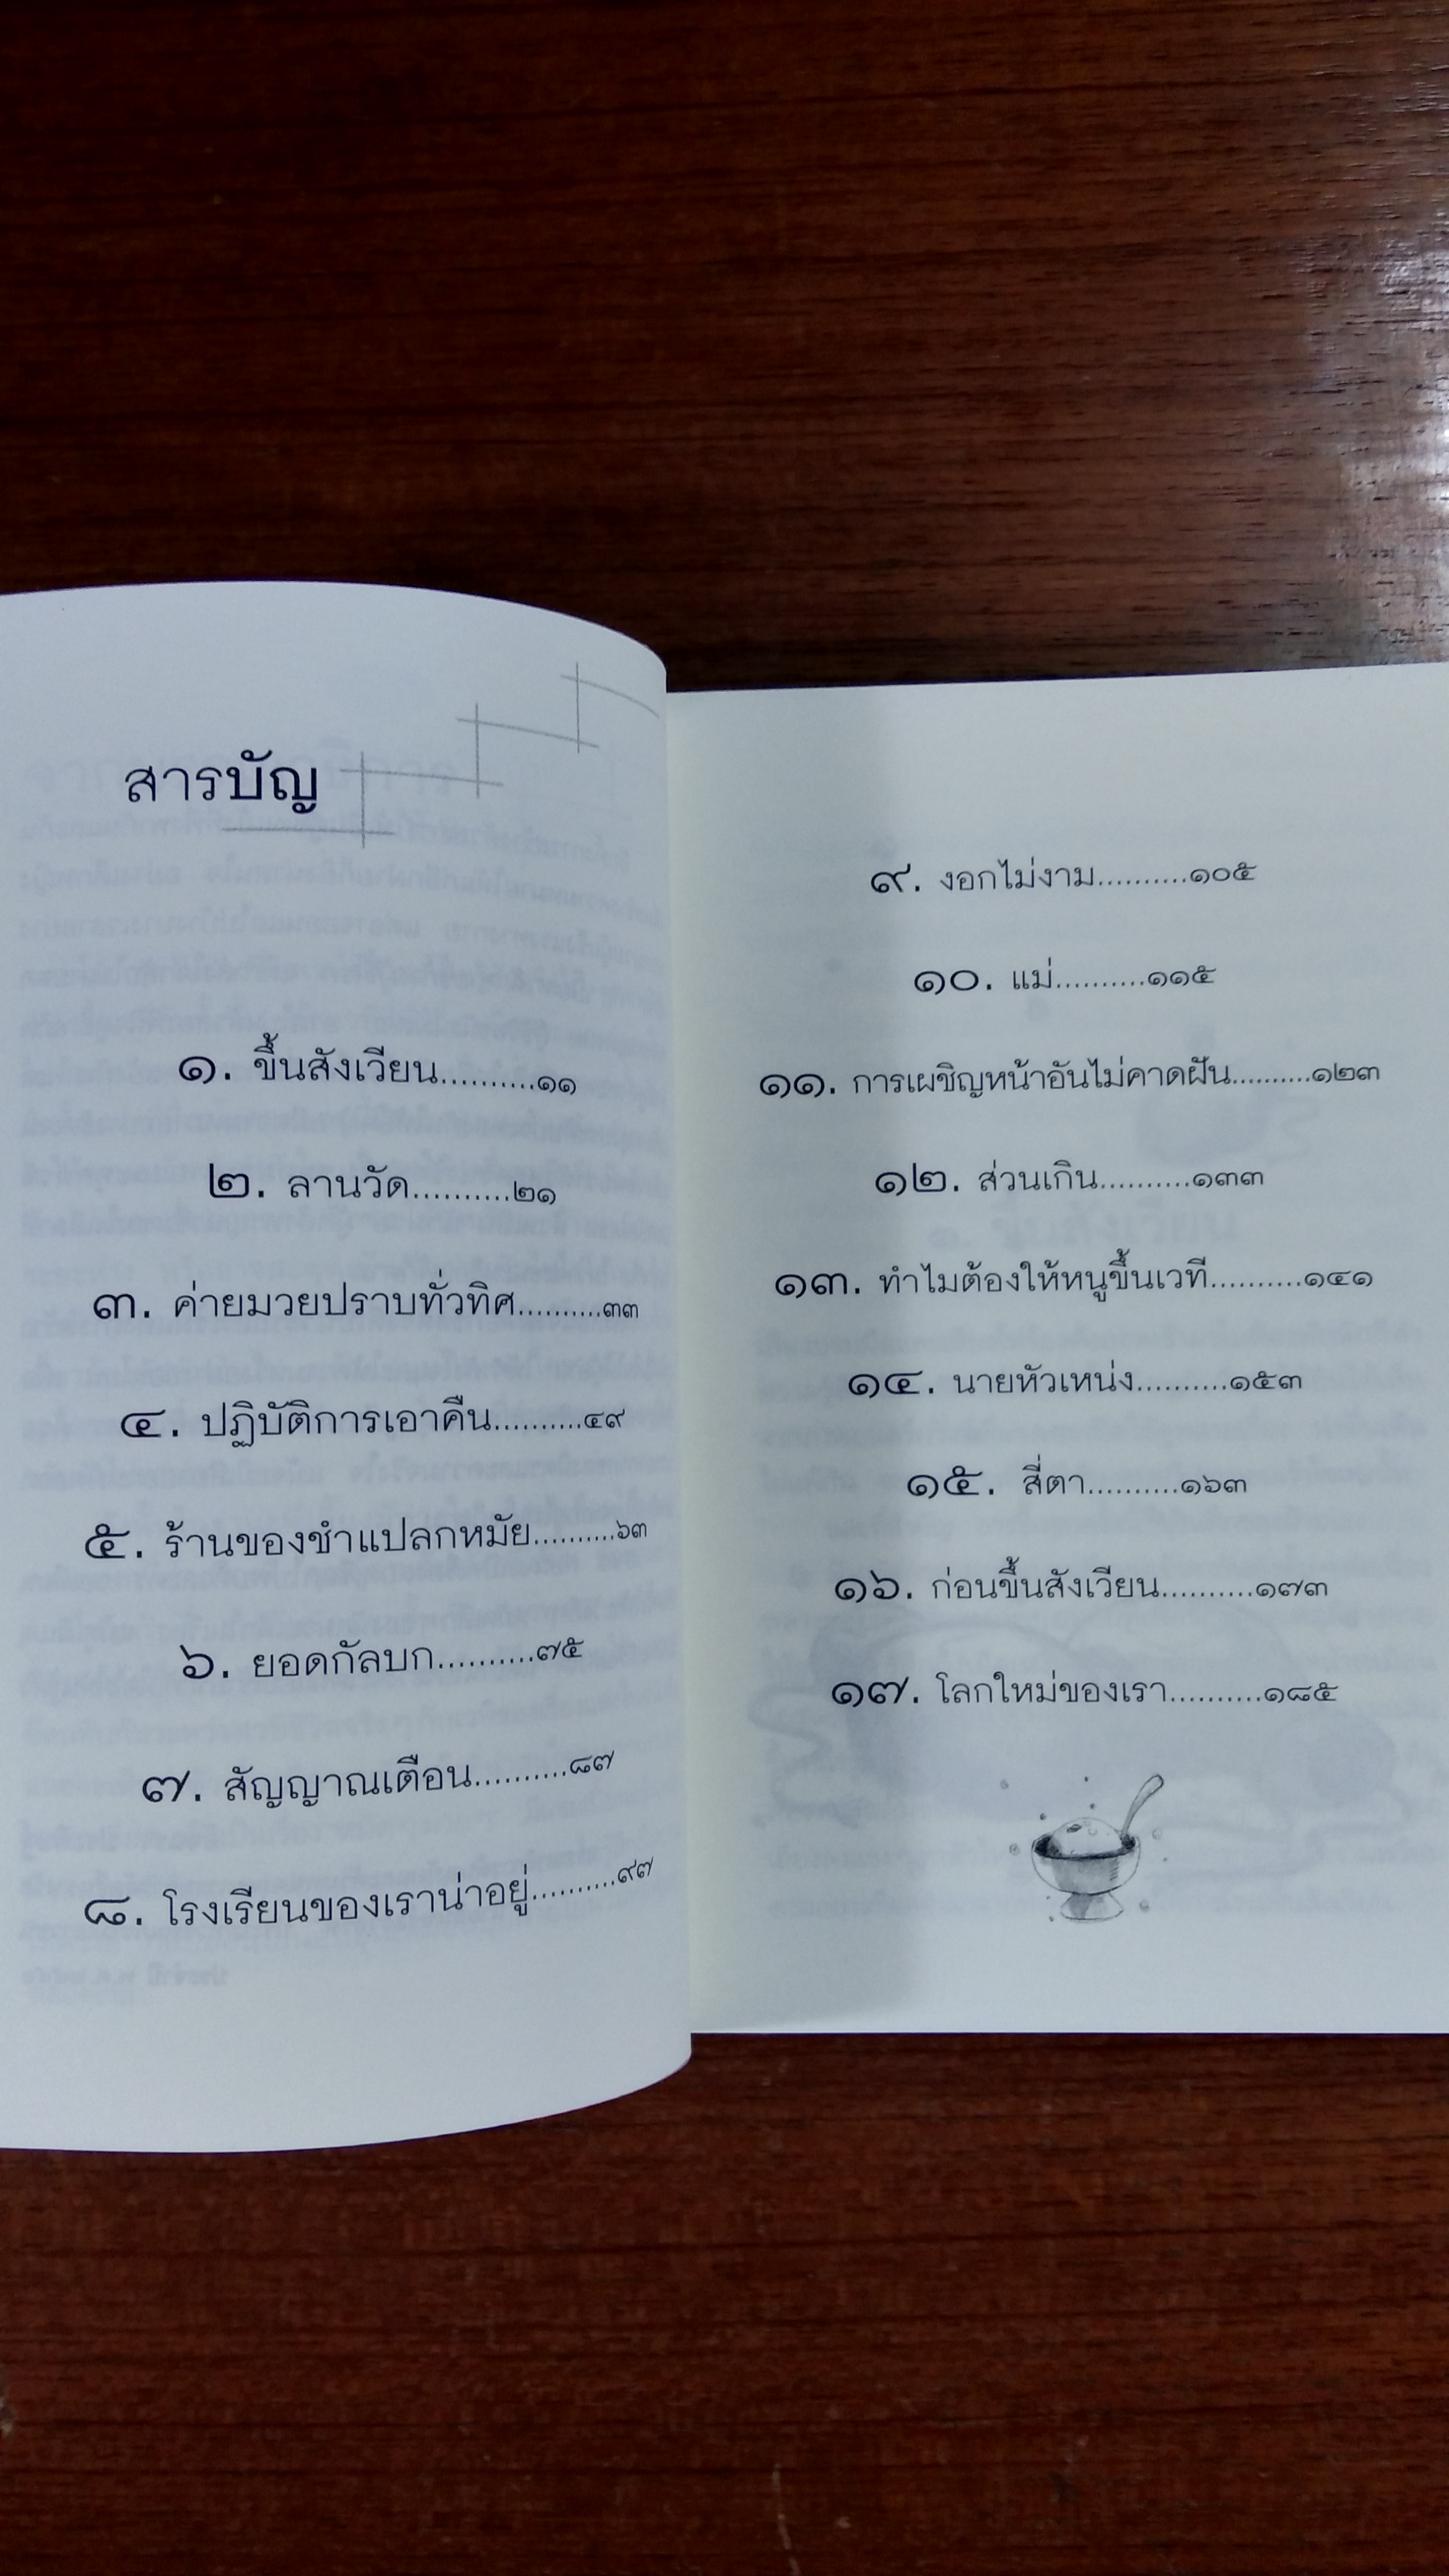 สารบัญ
๑. ขึ้นสังเวียน..........๑๑
๒. ลานวัด..........๒๑
๓. ค่ายมวยปราบทั่วทิศ..........๓๓
๔. ปฏิบัติการเอาคืน..........๔๙
๕. ร้านของชำแปลกหมัย..........๖๓
๖. ยอดกัลบก..........๗๕
๗. สัญญาณเตือน..........๘๗
๘. โรงเรียนของเราน่าอยู่..........๙๗
๙. งอกไม่งาม..........๑๐๕
๑๐. แม่..........๑๑๕
๑๑. การเผชิญหน้าอันไม่คาดฝัน..........๑๒๓
๑๒. ส่วนเกิน..........๑๓๓
๑๓. ทำไมต้องให้หนูขึ้นเวที..........๑๔๑
๑๔. นายหัวเหน่ง..........๑๕๓
๑๕. สี่ตา..........๑๖๓
๑๖. ก่อนขึ้นสังเวียน..........๑๗๓
๑๗. โลกใหม่ของเรา..........๑๘๕